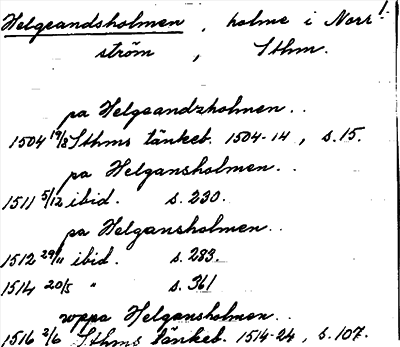 Helgeandsholmen, holme i Norr-
ström, Sthm.
pa Helgeandzholmen..
1504 19/8 Sthms tänkeb. 1504-14, s. 15.
pa Helgansholmen..
1511 5/12 ibid. s. 230.
pa Helgansholmen..
1512 29/11 ibid. s. 283.
1514 20/5 " s. 361
vppa Helgansholmen..
1516 2/6 Sthms tänkeb. 1514-24, s. 107.